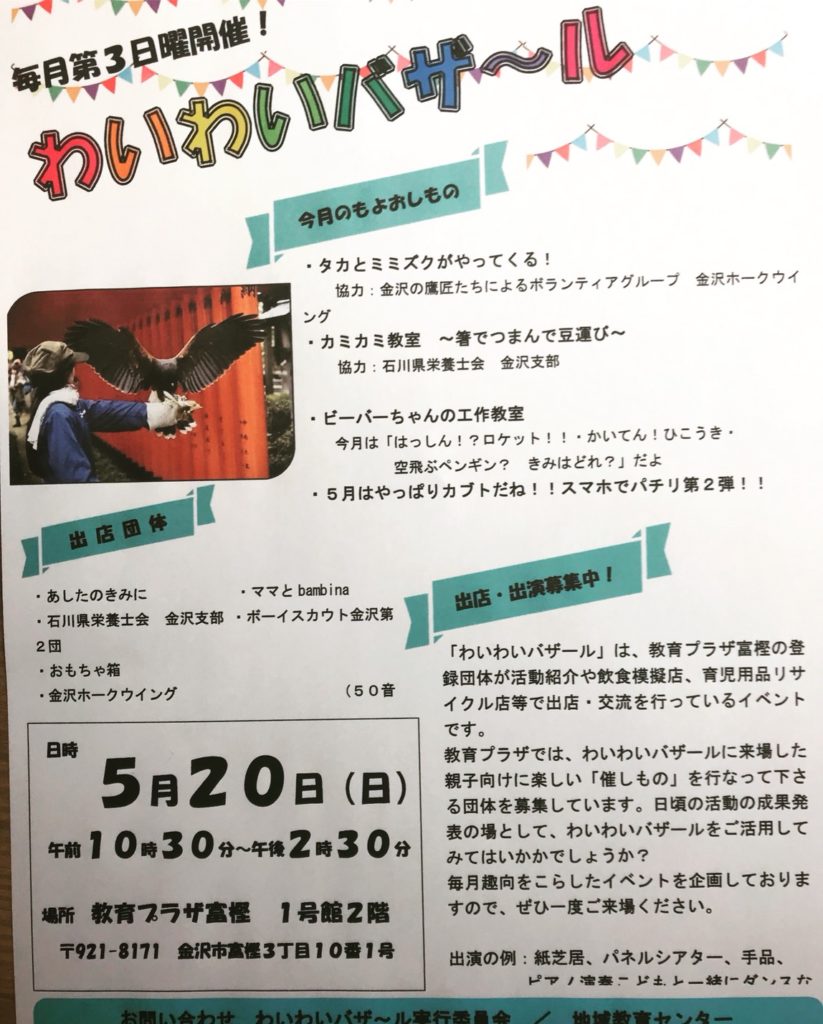 毎月第3日曜開催！
わいわいバザ～ル
今月のもよおしもの
・タカとミミズクがやってくる！
協力：金沢の鷹匠たちによるボランティアグループ　金沢ホークウイ
ング
・カミカミ教室　～箸でつまんで豆運び～
協力：石川県栄養士会　金沢支部
・ビーバーちゃんの工作教室
今月は「はっしん！？ロケット！！・かいてん！ひこうき・
空飛ぶペンギン？　きみはどれ？」だよ
・５月はやっぱりカブトだね！！スマホでパチリ第２弾！！
出店団体
・あしたのきみに　・ママとbambina
・石川県栄養士会　金沢支部　・ボーイスカウト金沢第
２団
・おもちゃ箱
・金沢ホークウイング　（５０音
日時
５月２０日（日）
午前１０時３０分～午後２時３０分
場所　教育プラザ富樫　１号館２階
〒921-8171　金沢市富樫３丁目１０番１号
出店・出演募集中！
「わいわいバザール」は、教育プラザ富樫の登
録団体が活動紹介や飲食模擬店、育児用品リサ
イクル店等で出店・交流を行っているイベント
です。
教育プラザでは、わいわいバザールに来場した
親子向けに楽しい「催しもの」を行なって下さ
る団体を募集しています。日頃の活動の成果発
表の場として、わいわいバザールをご活用して
みてはいかかでしょうか？
毎月趣向をこらしたイベントを企画しておりま
すので、ぜひ一度ご来場ください。
出演の例：紙芝居、パネルシアター、手品、
ピアノ演奏こどもと一緒にダンスな
お問い合わせ　わいわいバザ～ル実行委員会　／　地域教育センター